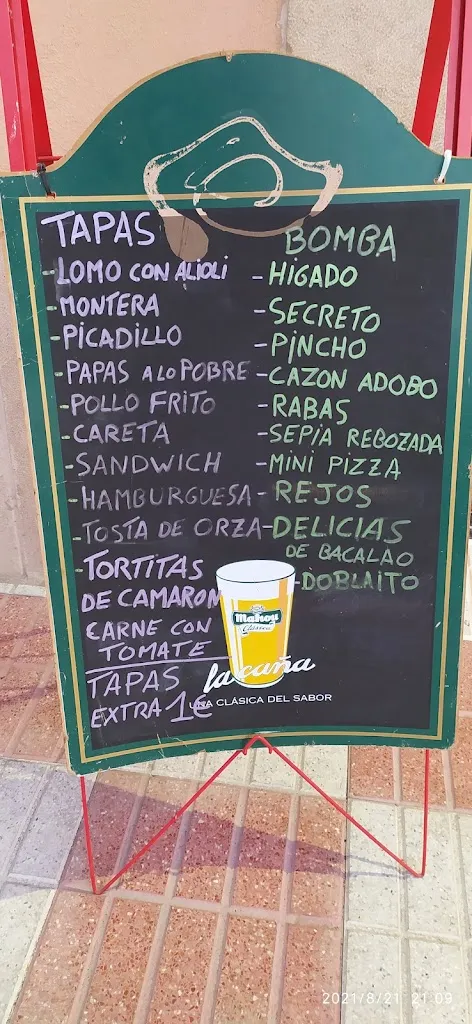 TAPAS
-LOMO CON ALIOLI
-MONTERA
-PICADILLO
-PAPAS A LO POBRE
-POLLO FRITO
-CARETA
-SANDWICH
-HAMBURGUESA
-TOSTA DE ORZA
-TORTITAS
DE CAMARON
CARNE CON
TOMATE
TAPAS
EXTRA 1€
BOMBA
-HIGADO
-SECRETO
-PINCHO
-CAZON ADOBO
-RABAS
-SEPIA REBOZADA
-MINI PIZZA
-REJOS
-DELICIAS
DE BACALAO
-DOBLAITO
Mahou
Clásica
la caña
UNA CLÁSICA DEL SABOR
2021/8/21 21:09